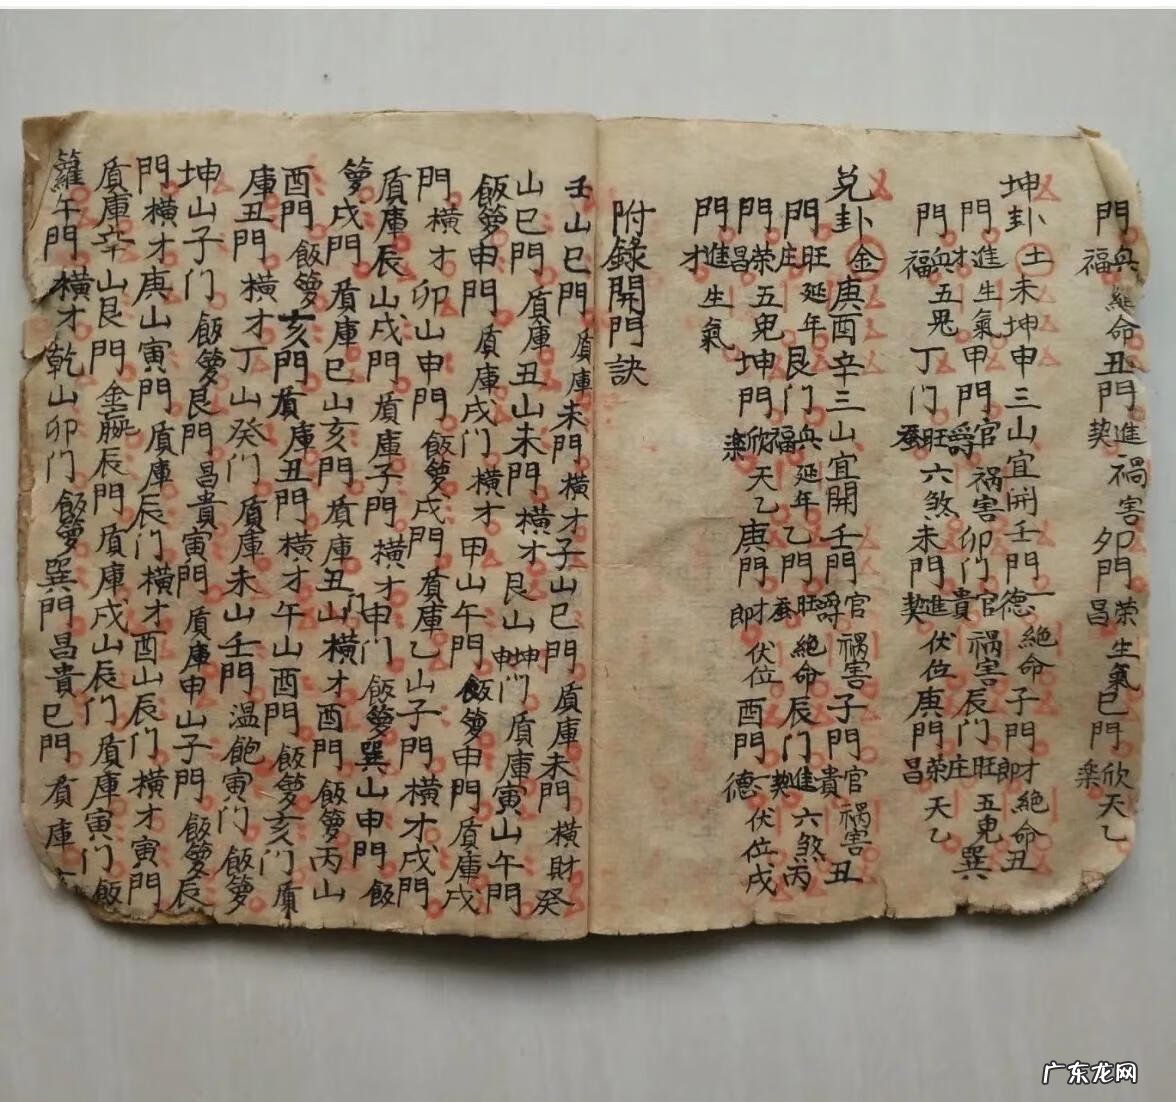 門兵福絶命丑門進契禍害夘門荣昌生氣巳門欣楽天乙
坤卦土未坤申三山宜開壬門一德絶命子門才即絶命丑
門進才生氣甲門官爵祸害卯门官貴祸害辰门旺庄五鬼巽
門兵福五鬼丁门旺蚕六煞未門進契伏位庚門荣昌天乙
兑卦金庚酉辛三山宜開壬門官爵祸害子門官貴祸害丑
門旺庄延年艮门兵福延年乙門旺蚕絶命辰门進契六煞丙
門荣昌五鬼坤門欣楽天乙庚門才即伏位酉門一德伏位戌
門進才生氣
附錄開門訣
壬山巳門盾庫未門横才子山巳門盾庫未門横財癸
山巳門盾庫丑山未門横才艮山坤申门盾庫寅山午門
飯箩申門盾庫戌门横才甲山午門飯箩申門盾庫戌
門横才卯山申門飯箩戌門盾庫乙山子門横才戌門
盾庫辰山戌門盾庫子門横才申门飯箩巽山申門飯
箩戌門盾庫巳山亥門盾庫丑门山横才酉門飯箩丙山
酉門飯箩亥門盾庫丑門横才午山酉門飯箩亥门盾
庫丑門横才丁山癸门盾庫未山壬門温飽寅门飯箩
坤山子门飯箩艮門昌貴寅門盾庫申山子門飯箩辰
門横才庚山寅門盾庫辰门横才酉山辰门横才寅門
盾庫辛山艮門金辰門盾庫戌山辰门盾庫寅门飯
籮午門横才乾山卯门飯箩巽門昌貴巳門盾庫
广东龙网